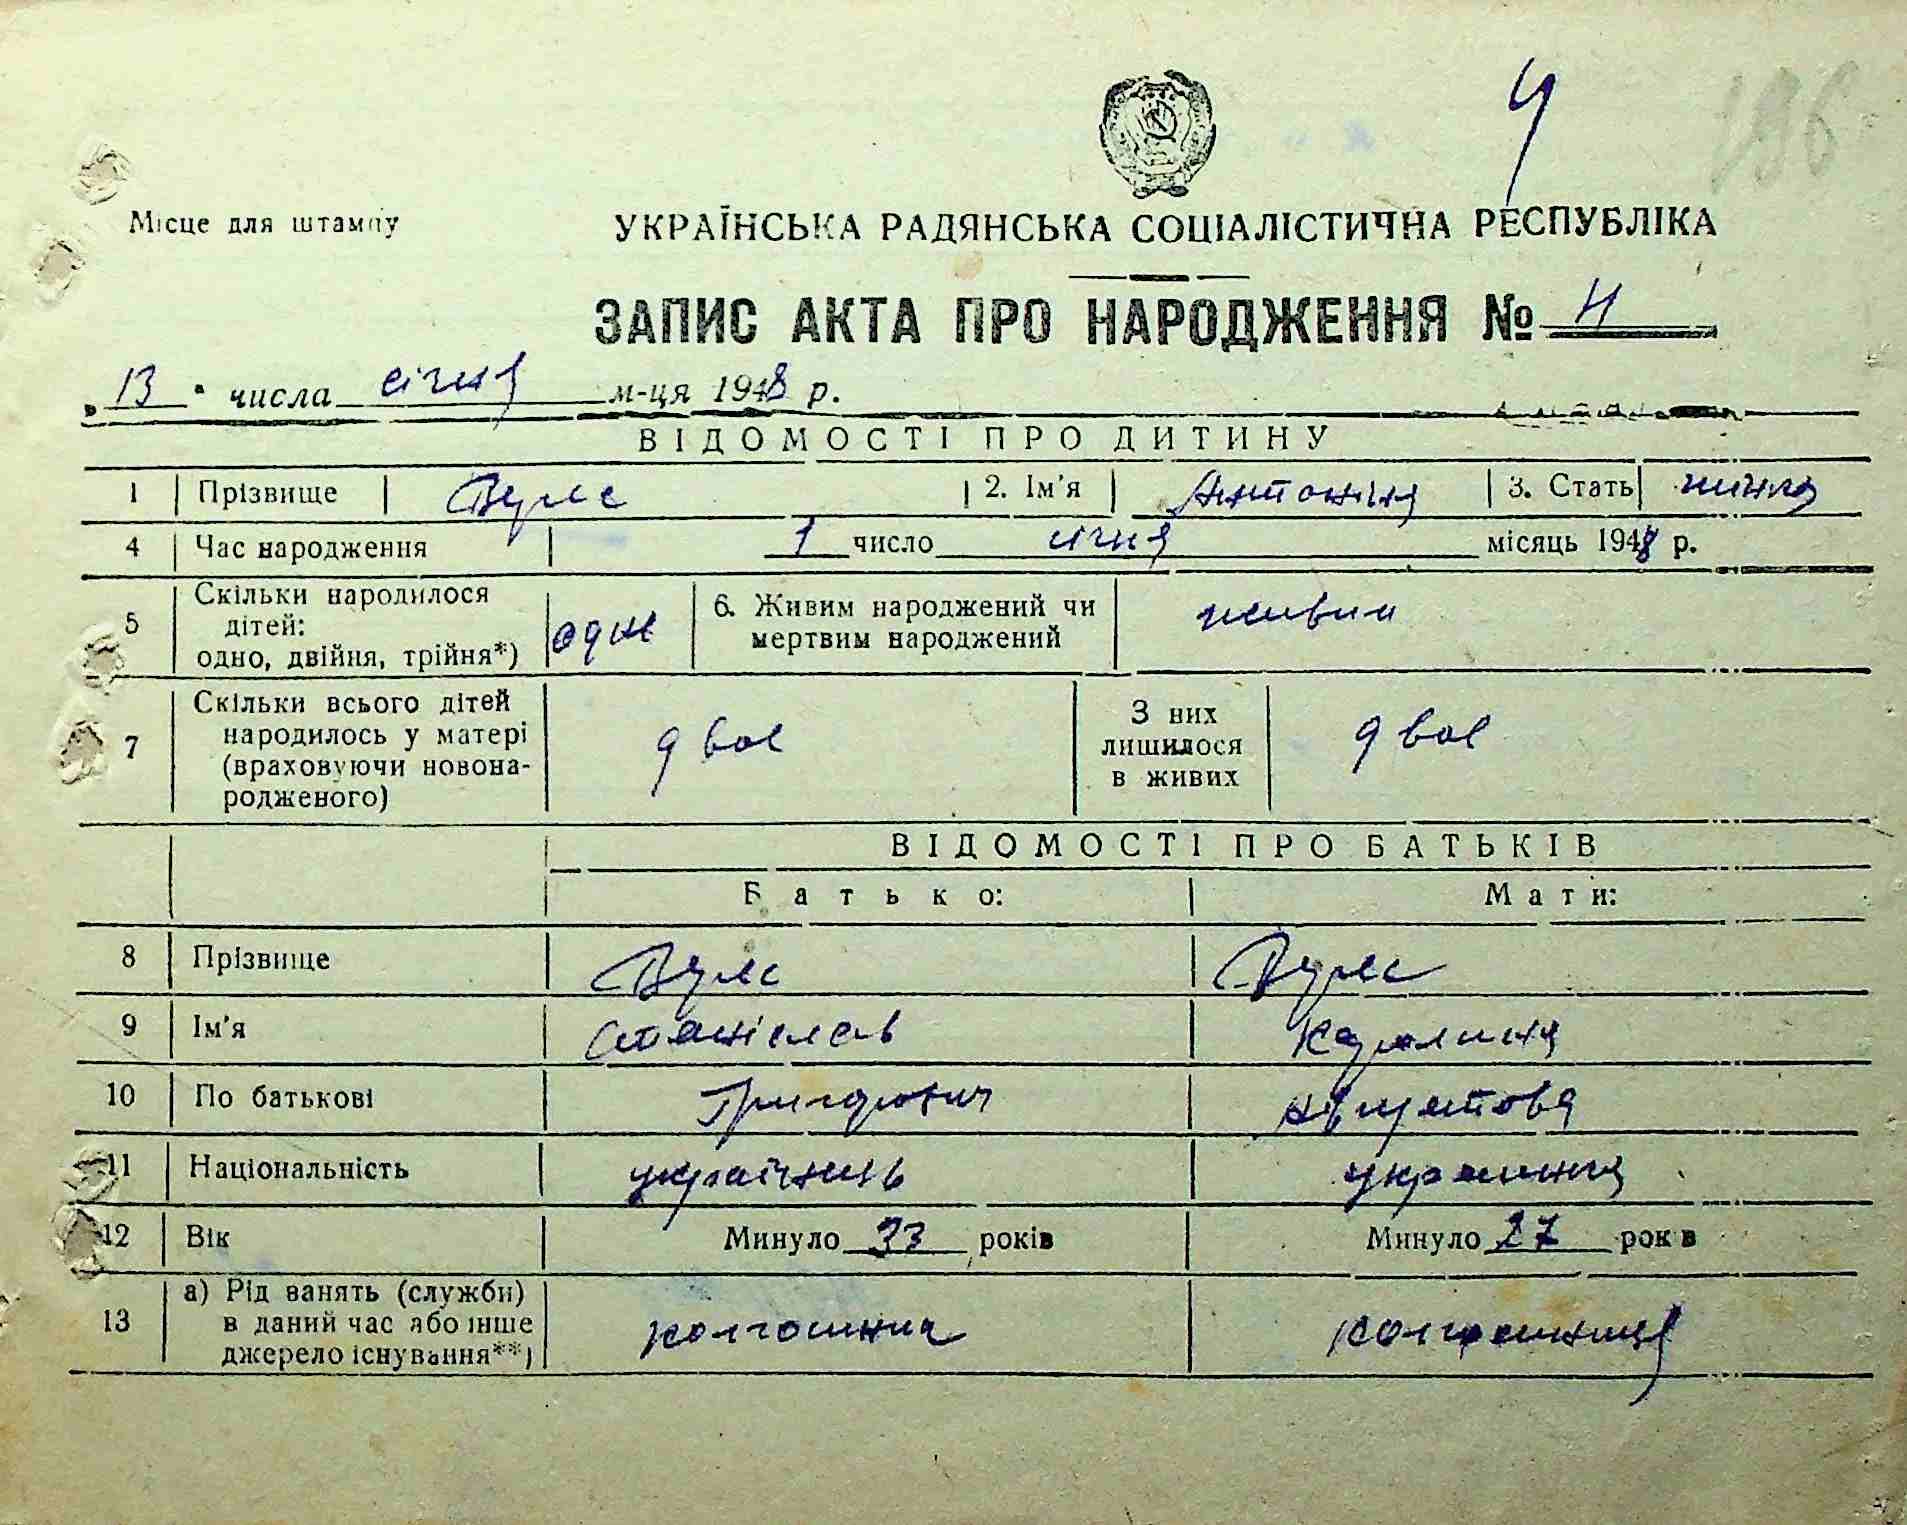 196
4
Місце для штампу
УКРАЇНСЬКА РАДЯНСЬКА СОЦІАЛІСТИЧНА РЕСПУБЛІКА
ЗАПИС АКТА ПРО НАРОДЖЕННЯ № 4
"13" числа січня м-ця 1948 р.
ВІДОМОСТІ ПРО ДИТИНУ
1 Прізвище 2. Ім'я Антоніна 3. Стать жіноч
4 Час народження 1 число січня місяць 1948 р.
5 Скільки народилося дітей: одно, двійня, трійня*) одне 6. Живим народжений чи мертвим народжений живим
7 Скільки всього дітей народилось у матері (враховуючи новонародженого) двоє З них лишилося в живих двоє
ВІДОМОСТІ ПРО БАТЬКІВ
Батько: Мати:
8 Прізвище
9 Ім'я Станіслав Кароліна
10 По батькові Григорович Августова
11 Національність українець українка
12 Вік Минуло 33 років Минуло 27 років
13 а) Рід занять (служби) в даний час або інше джерело існування**) колгоспник колгоспниця